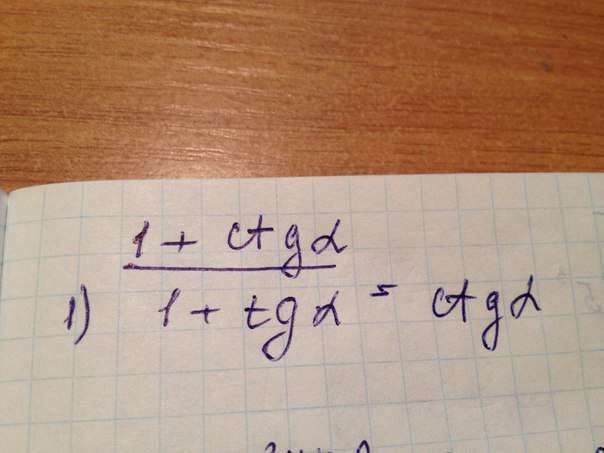 1 + ctg α
1) 1 + tg α = ctg α